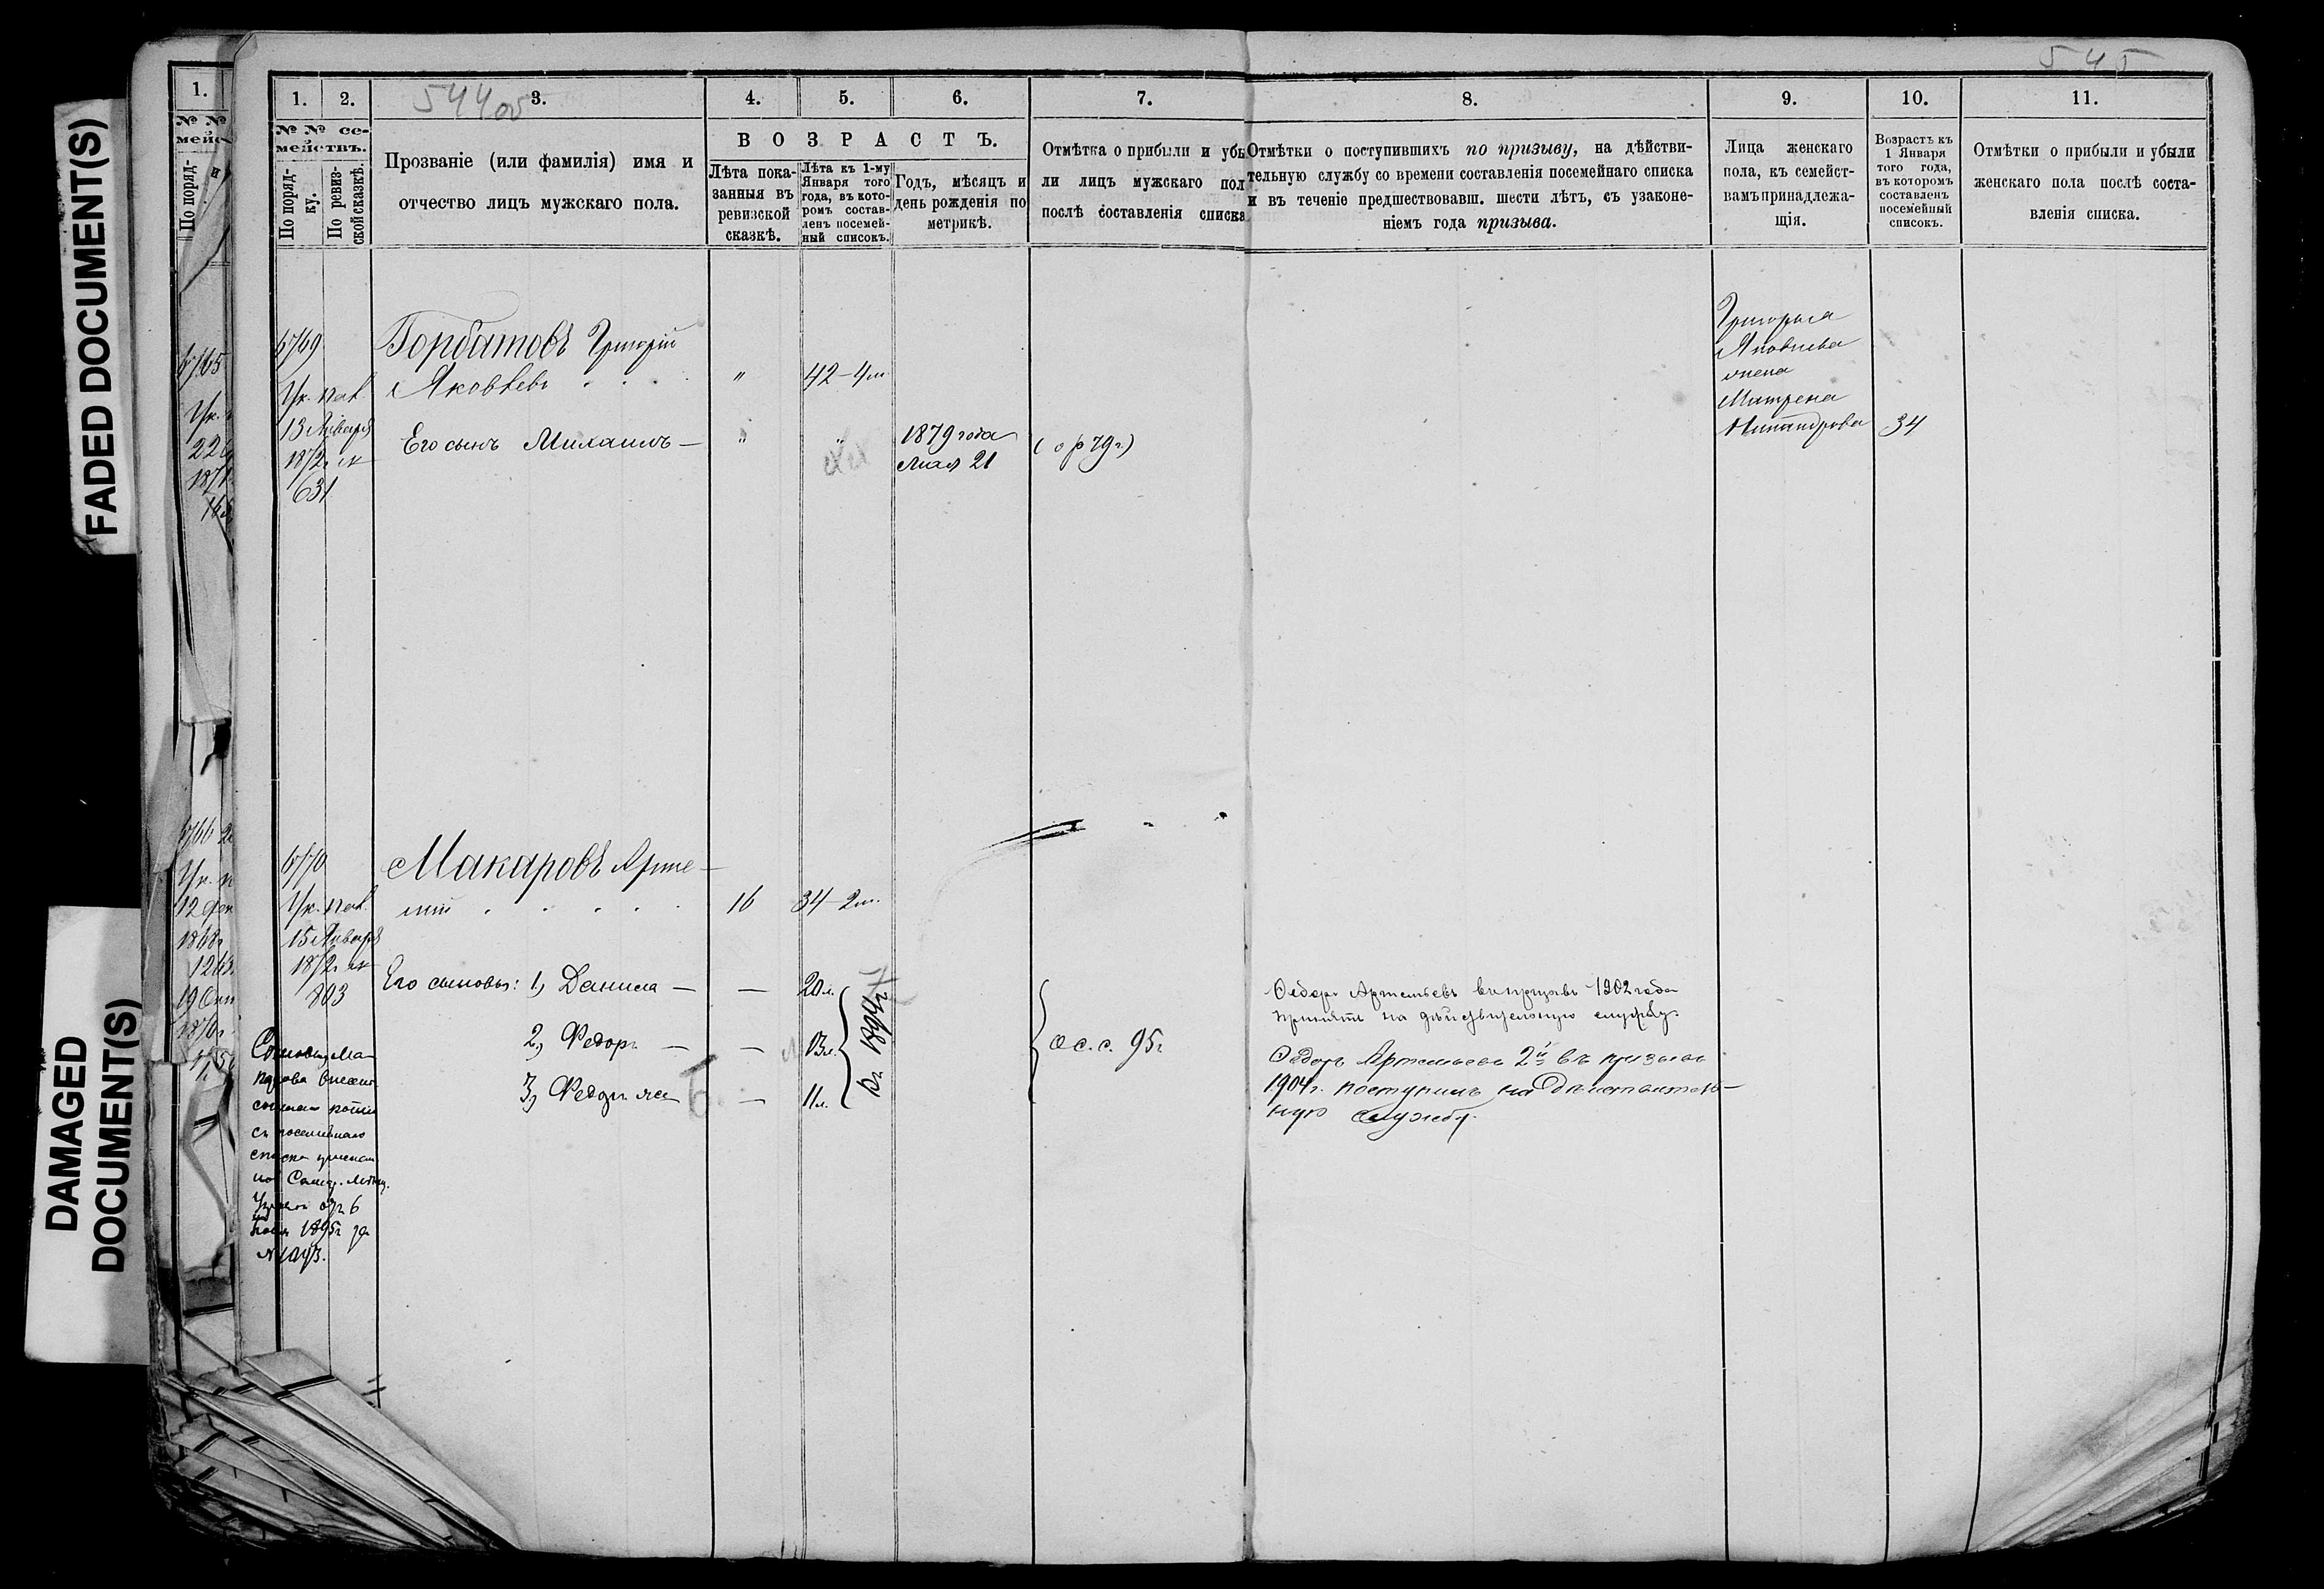 FADED DOCUMENT(S)
DAMAGED
DOCUMENT(S)
544об
545
1.
1.
2.
3.
4.
5.
6.
7.
8.
9.
10.
11.
№ №
№ № се-
мействъ.
По поряд-
По поряд-
ку.
По ревиз-
ской сказкѣ.
Прозваніе (или фамилія) имя и
отчество лицъ мужскаго пола.
ВОЗРАСТЪ.
Лѣта пока-
занныя въ
ревизской
сказкѣ.
Лѣта къ 1-му
Января того
года, въ кото-
ромъ состав-
ленъ посемей-
ный списокъ.
Годъ, мѣсяцъ и
день рожденія по
метрикѣ.
Отмѣтка о прибыли и убы
ли лицъ мужскаго пол
послѣ составленія списка
Отмѣтки о поступившихъ по призыву, на дѣйстви-
тельную службу со времени составленія посемейнаго списка
и въ теченіе предшествовавш. шести лѣтъ, съ узаконе-
ніемъ года призыва.
Лица женскаго
пола, къ семейст-
вамъ принадлежа-
щія.
Возрастъ къ
1 Января
того года,
въ которомъ
составленъ
посемейный
списокъ.
Отмѣтки о прибыли и убыли
женскаго пола послѣ соста-
вленія списка.
6765
6769
Ук. пал.
13 Января
1872 г. №
631
Горбатовъ Григорій
Яковлевъ
"
42-4м.
Его сынъ Михаилъ —
"
"
1879 года
Мая 21
(о р 79 г.)
Григорья
Яковлева
жена
Матрена
Никандрова
34
6766
6770
Ук. пал.
15 Января
1872 г. №
803
Макаровъ Арте-
мій
16
34-2м.
Его сыновья: 1) Данила —
—
20л.
2) Федоръ —
—
13л.
3) Федоръ же
—
11л.
Къ 1894 г.
о с. с. 95 г.
Федоръ Артемьевъ въ призывъ 1902 года
принятъ на дѣйствительную службу.
Федоръ Артемьевъ 2й въ призывъ
1904 г. поступилъ на дѣйствитель-
ную службу.
Сыновья Ма-
карова внесены
списка
1895 г. за